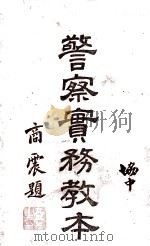 警察實務教本
商震題
協中